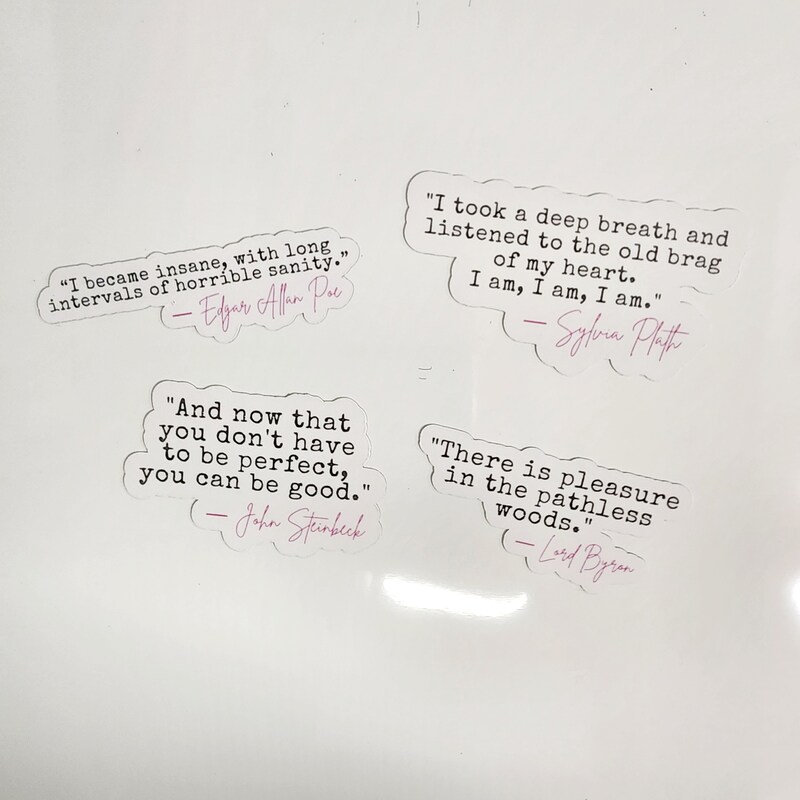 “I became insane, with long
intervals of horrible sanity.”
— Edgar Allan Poe
"I took a deep breath and
listened to the old brag
of my heart.
I am, I am, I am."
— Sylvia Plath
"And now that
you don't have
to be perfect,
you can be good."
— John Steinbeck
"There is pleasure
in the pathless
woods."
— Lord Byron